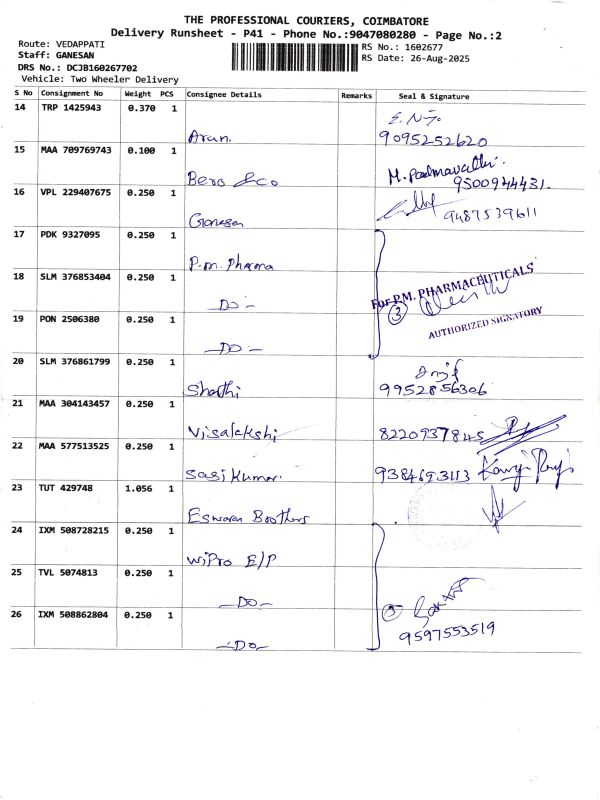 THE PROFESSIONAL COURIERS, COIMBATORE
Delivery Runsheet - P41 - Phone No.:9047080280 - Page No.:2
Route: VEDAPPATI
RS No.: 1602677
Staff: GANESAN
RS Date: 26-Aug-2025
DRS No.: DCJB160267702
Vehicle: Two Wheeler Delivery
S No Consignment No Weight PCS Consignee Details Remarks Seal & Signature
14 TRP 1425943 0.370 1
Arun.
9095252620
15 MAA 709769743 0.100 1
Bero & Co
M. Padmavathi.
9500944431.
16 VPL 229407675 0.250 1
Ganesan
9487539611
17 PDK 9327095 0.250 1
P.m. Pharma
18 SLM 376853404 0.250 1
For P.M. PHARMACEUTICALS
- DO -
3
19 PON 2506380 0.250 1
AUTHORIZED SIGNATORY
- DO -
20 SLM 376861799 0.250 1
Shathi
9952856306
21 MAA 304143457 0.250 1
Visalakshi
8220937845
22 MAA 577513525 0.250 1
Sasi Kumar.
23 TUT 429748 1.056 1
Eswaran Brothers
24 IXM 508728215 0.250 1
Wipro E/P
25 TVL 5074813 0.250 1
- DO -
26 IXM 508862804 0.250 1
9597553519
- DO -